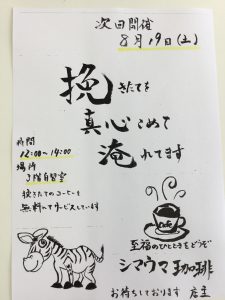 次回開催
8月19日(土)
挽きたてを
真心こめて
淹れてます
時間
12:00〜14:00
場所
3階自習室
挽きたてのコーヒーを
無料にてサービスしています
Cafe
至福のひとときをどうぞ
シマウマ珈琲
お待ちしております 店主